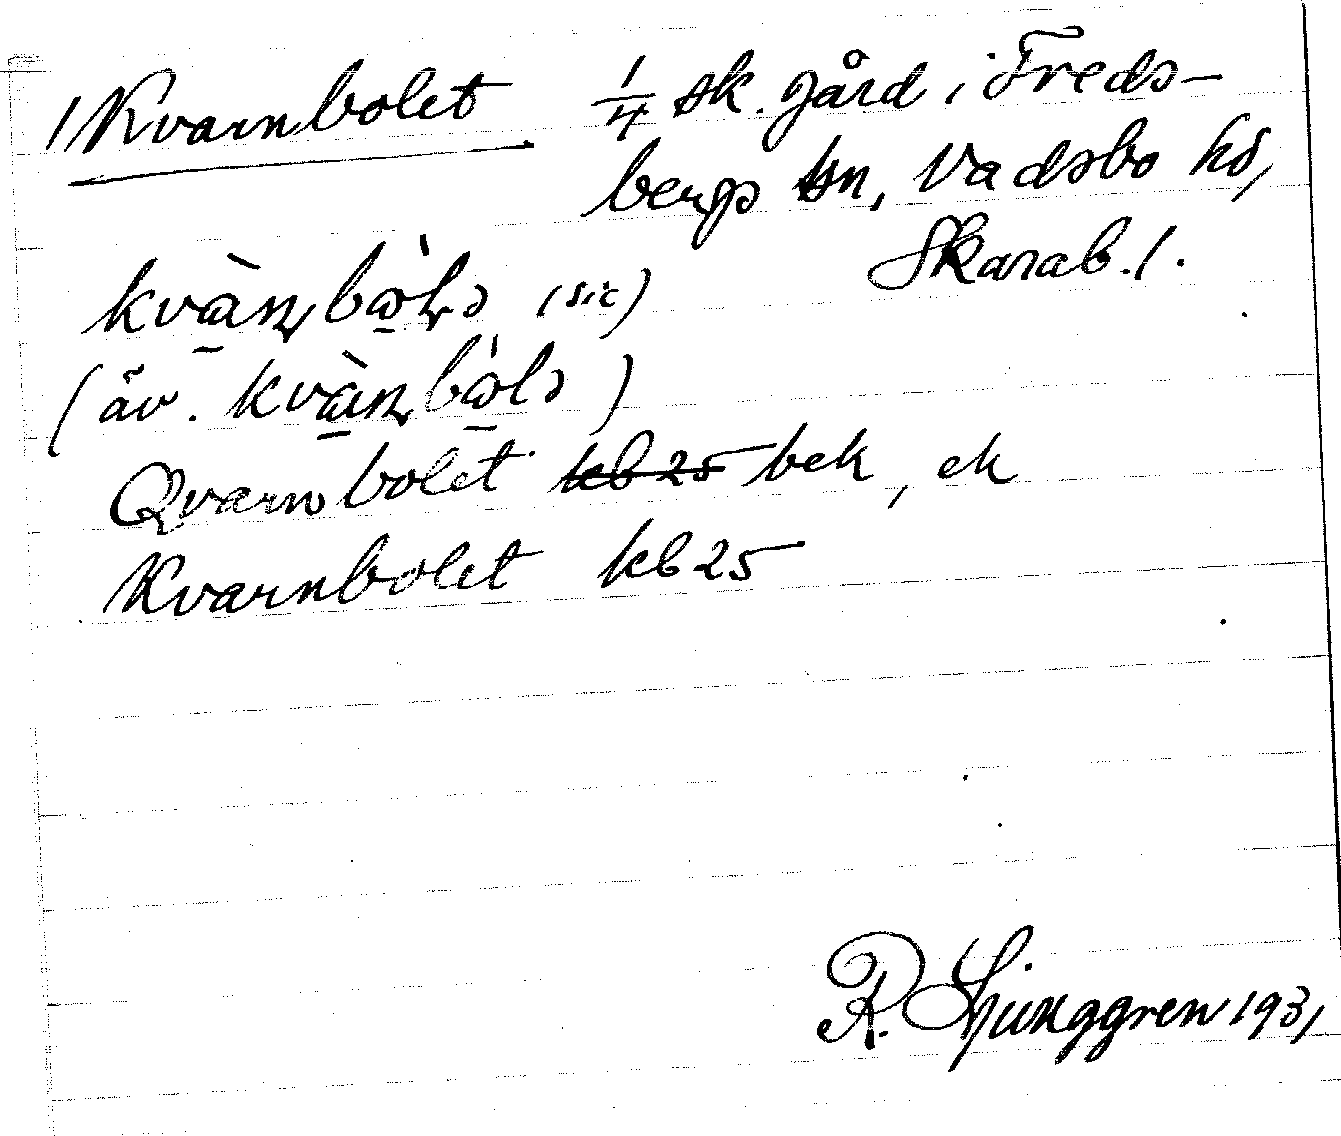 /Kvarnbolet 1/4 sk. gård i Freds-
bergs sn, Vadsbo hd,
Skarab.l.
(sic)
(äv. )
Qvarnbolet ~~kb 25~~ bek, ek
Kvarnbolet kb 25
R. Ljunggren 1931